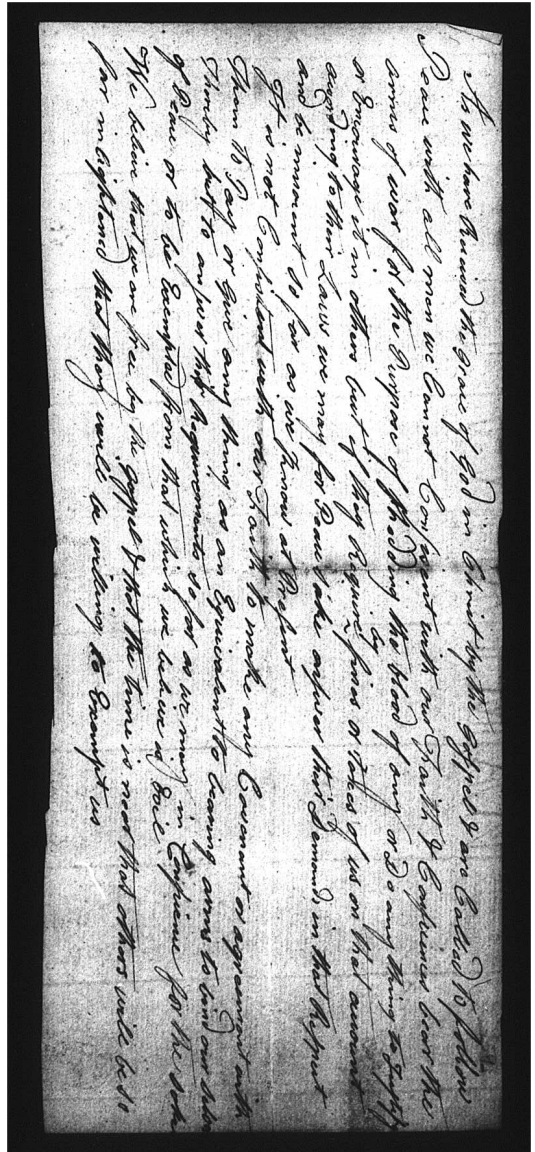 As we have received the grace of God in Christ by the Gospel & are Called to follow
Peace with all men we Cannot Consistent with our Faith & Consciences bear the
arms of war for the Purpose of shedding the blood of any or Do any thing to Justify
or Encourage it in others but if they Require fines or taxes of us on that account
according to their Laws we may for Peace sake answer their Demands in that Respect
and be innocent so far as we know at Present
It is not Consistent with our Faith to make any Covenant or agreement with
them to Pay or give any thing as an Equivalent to bearing arms to bind our selves
thereby but to answer their Requirements so far as we may in Conscience for the sake
of Peace or to be Exempted from that which we believe is Evil
We believe that we are free by the Gospel & that the time is near that others will be so
far inlightened that they will be willing to Exempt us